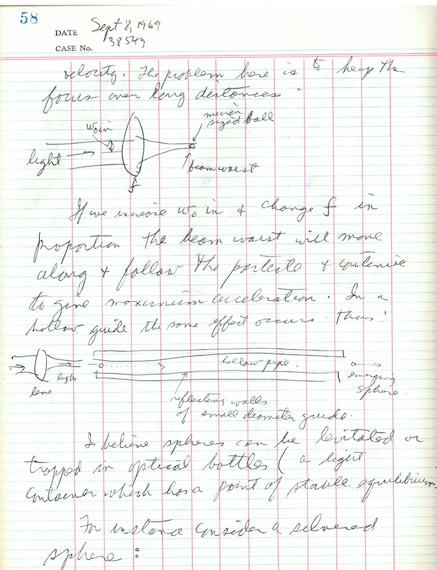 58
DATE Sept 8, 1969
CASE No. 38543
velocity. The problem here is to keep the
focus over long distances.
w₀ in
micron
sized ball
light
beam waist
f
If we increase w₀ in & change f in
proportion the beam waist will move
along & follow the particle & continue
to give maximum acceleration. In a
hollow guide the same effect occurs. Thus:
hollow pipe.
lens
light
emerging
sphere.
reflecting walls
of small diameter guide.
I believe spheres can be levitated or
trapped in optical bottles (a light
container which has a point of stable equilibrium.
For instance consider a silvered
sphere: